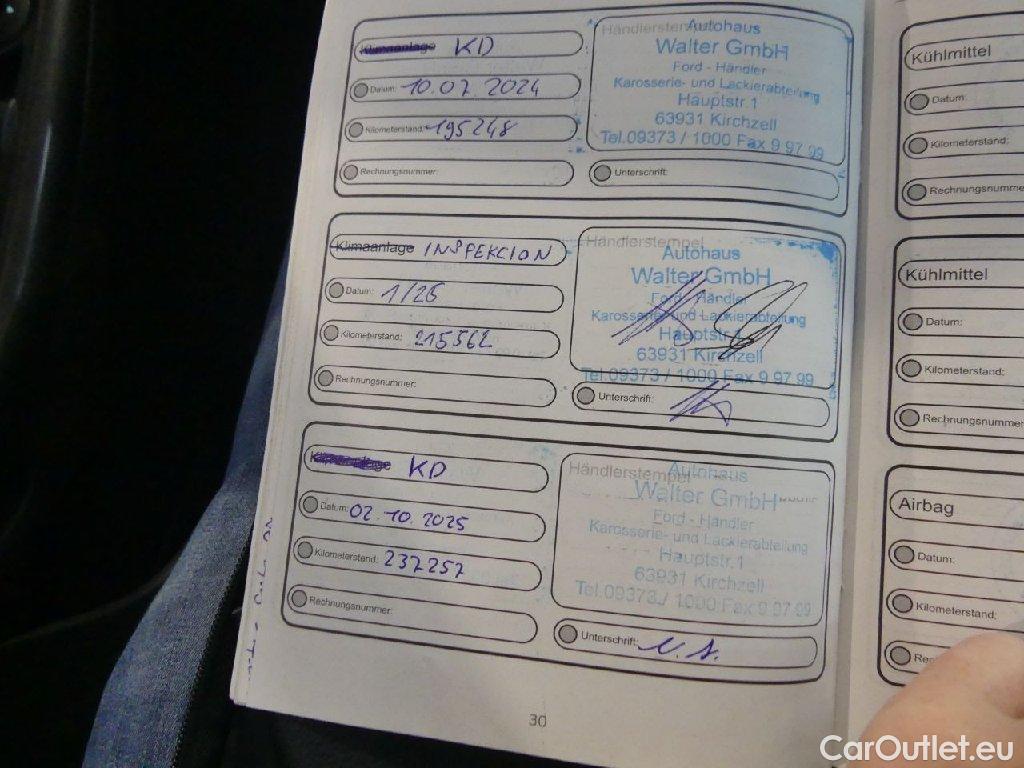 Klimaanlage KD
Datum: 10.07.2024
Kilometerstand: 195248
Rechnungsnummer:
Händlerstempel
Autohaus
Walter GmbH
Ford - Händler
Karosserie- und Lackierabteilung
Hauptstr.1
63931 Kirchzell
Tel.09373 / 1000 Fax 9 97 99
Unterschrift:
Klimaanlage INSPEKCION
Datum: 1/25
Kilometerstand: 215562
Rechnungsnummer:
Händlerstempel
Autohaus
Walter GmbH
Ford - Händler
Karosserie- und Lackierabteilung
Hauptstr.1
63931 Kirchzell
Tel.09373 / 1000 Fax 9 97 99
Unterschrift:
Klimaanlage KD
Datum: 02.10.2025
Kilometerstand: 237257
Rechnungsnummer:
Händlerstempel
Autohaus
Walter GmbH
Ford - Händler
Karosserie- und Lackierabteilung
Hauptstr.1
63931 Kirchzell
Tel.09373 / 1000 Fax 9 97 99
Unterschrift:
30
Kühlmittel
Datum:
Kilometerstand:
Rechnungsnumme
Kühlmittel
Datum:
Kilometerstand:
Rechnungsnummer
Airbag
Datum:
Kilometerstand:
Rec
CarOutlet.eu